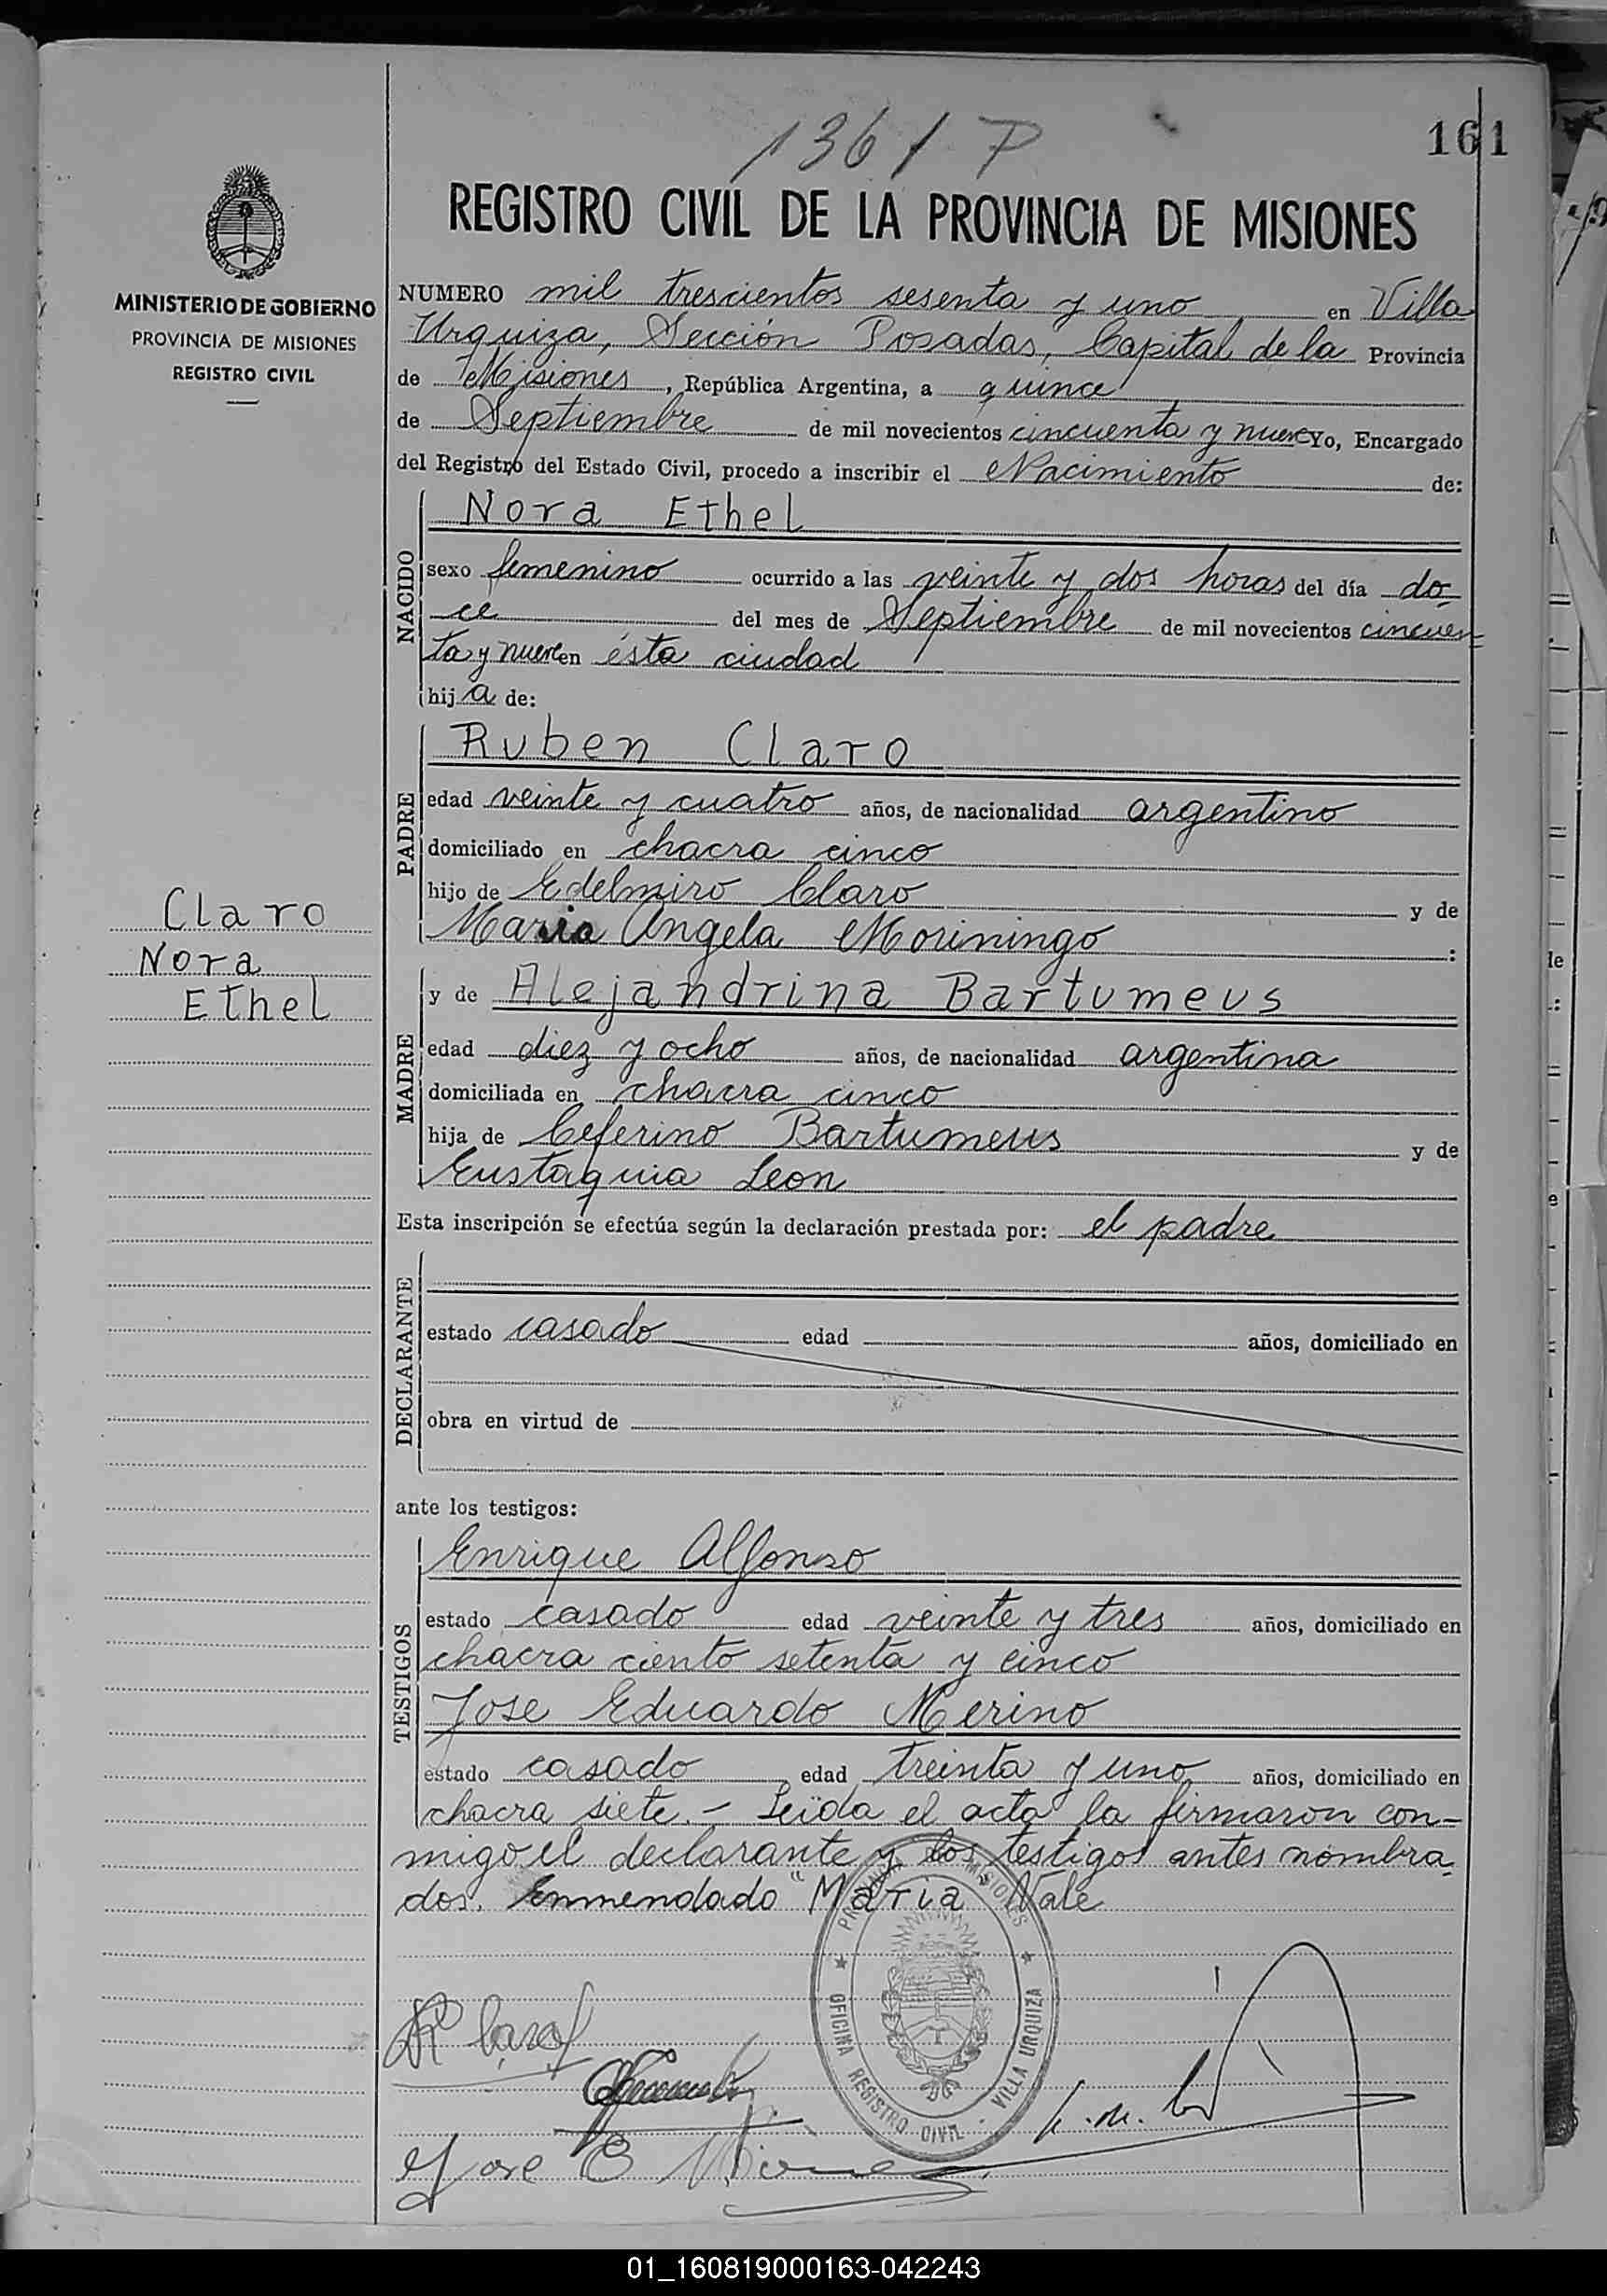 1361 P
161
REGISTRO CIVIL DE LA PROVINCIA DE MISIONES
MINISTERIO DE GOBIERNO
PROVINCIA DE MISIONES
REGISTRO CIVIL
NUMERO mil trescientos sesenta y uno en Villa
Urquiza, Sección Posadas, Capital de la Provincia
de Misiones, República Argentina, a quince
de Septiembre de mil novecientos cincuenta y nueve Yo, Encargado
del Registro del Estado Civil, procedo a inscribir el Nacimiento de:
NACIDO
Nora Ethel
sexo femenino ocurrido a las veinte y dos horas del día do-
ce del mes de Septiembre de mil novecientos cincuen-
ta y nueve en ésta ciudad
hija de:
PADRE
Ruben Claro
edad veinte y cuatro años, de nacionalidad argentino
domiciliado en chacra cinco
hijo de Edelmiro Claro y de
Maria Angela Moriningo :
Claro
Nora
Ethel
MADRE
y de Alejandrina Bartumeus
edad diez y ocho años, de nacionalidad argentina
domiciliada en chacra cinco
hija de Ceferino Bartumeus y de
Eustaquia Leon
Esta inscripción se efectúa según la declaración prestada por: el padre
DECLARANTE
estado casado edad años, domiciliado en
obra en virtud de
ante los testigos:
TESTIGOS
Enrique Alfonso
estado casado edad veinte y tres años, domiciliado en
chacra ciento setenta y cinco
Jose Eduardo Merino
estado casado edad treinta y uno años, domiciliado en
chacra siete.- Leída el acta la firmaron con-
migo el declarante y los testigos antes nombra-
dos. Enmendado "Maria Vale
PROVINCIA MISIONES
OFICINA REGISTRO CIVIL - VILLA URQUIZA
Jose E
01_160819000163-042243